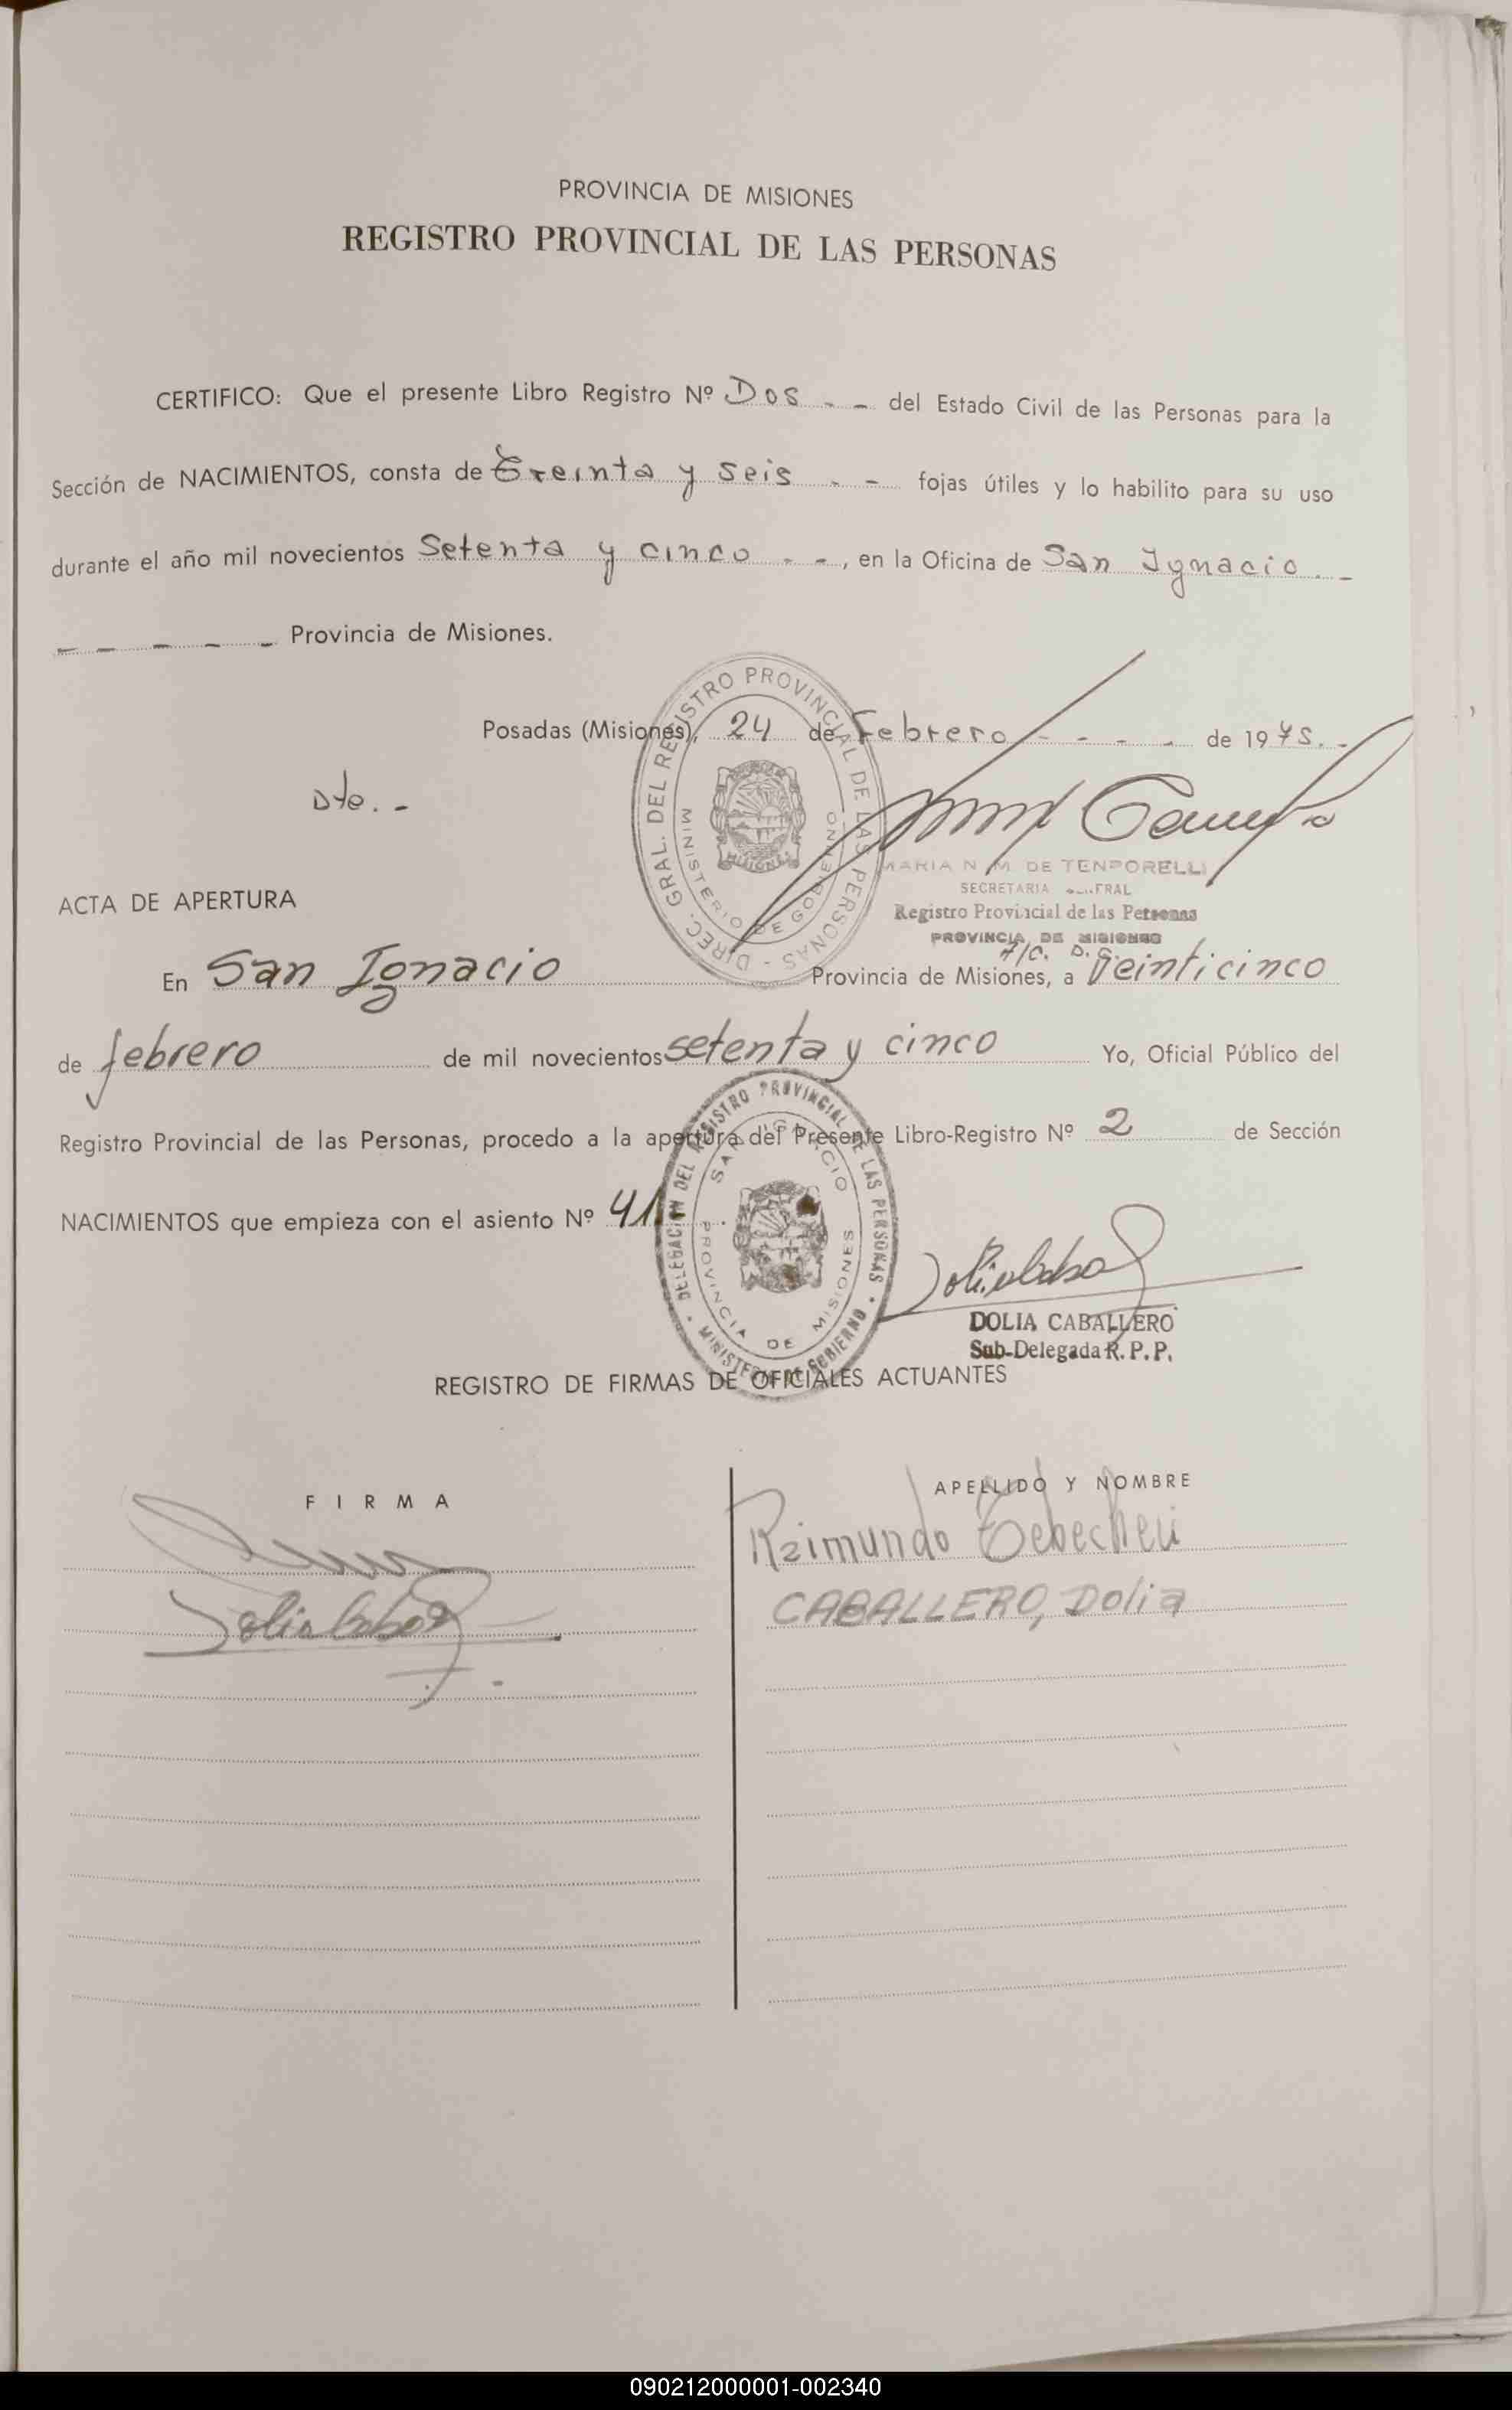 PROVINCIA DE MISIONES
REGISTRO PROVINCIAL DE LAS PERSONAS
CERTIFICO: Que el presente Libro Registro Nº Dos - - del Estado Civil de las Personas para la
Sección de NACIMIENTOS, consta de Treinta y seis - - fojas útiles y lo habilito para su uso
durante el año mil novecientos Setenta y cinco - -, en la Oficina de San Ignacio. -
- - - - - Provincia de Misiones.
Posadas (Misiones), 24 de Febrero - - - - de 1975. -
Dto. -
DIREC. GRAL. DEL REGISTRO PROVINCIAL DE LAS PERSONAS -
MINISTERIO DE GOBIERNO
MISIONES
MARIA N. M. DE TENPORELLI
SECRETARIA GENERAL
Registro Provincial de las Personas
PROVINCIA DE MISIONES
A/C. D. G.
ACTA DE APERTURA
En San Ignacio Provincia de Misiones, a Veinticinco
de febrero de mil novecientos setenta y cinco Yo, Oficial Público del
Registro Provincial de las Personas, procedo a la apertura del Presente Libro-Registro Nº 2 de Sección
NACIMIENTOS que empieza con el asiento Nº 41
DELEGACION DEL REGISTRO PROVINCIAL DE LAS PERSONAS · MINISTERIO DE GOBIERNO ·
SAN IGNACIO
PROVINCIA DE MISIONES
DOLIA CABALLERO
Sub-Delegada R. P. P.
REGISTRO DE FIRMAS DE OFICIALES ACTUANTES
FIRMA
APELLIDO Y NOMBRE
Raimundo
CABALLERO, Dolia
090212000001-002340